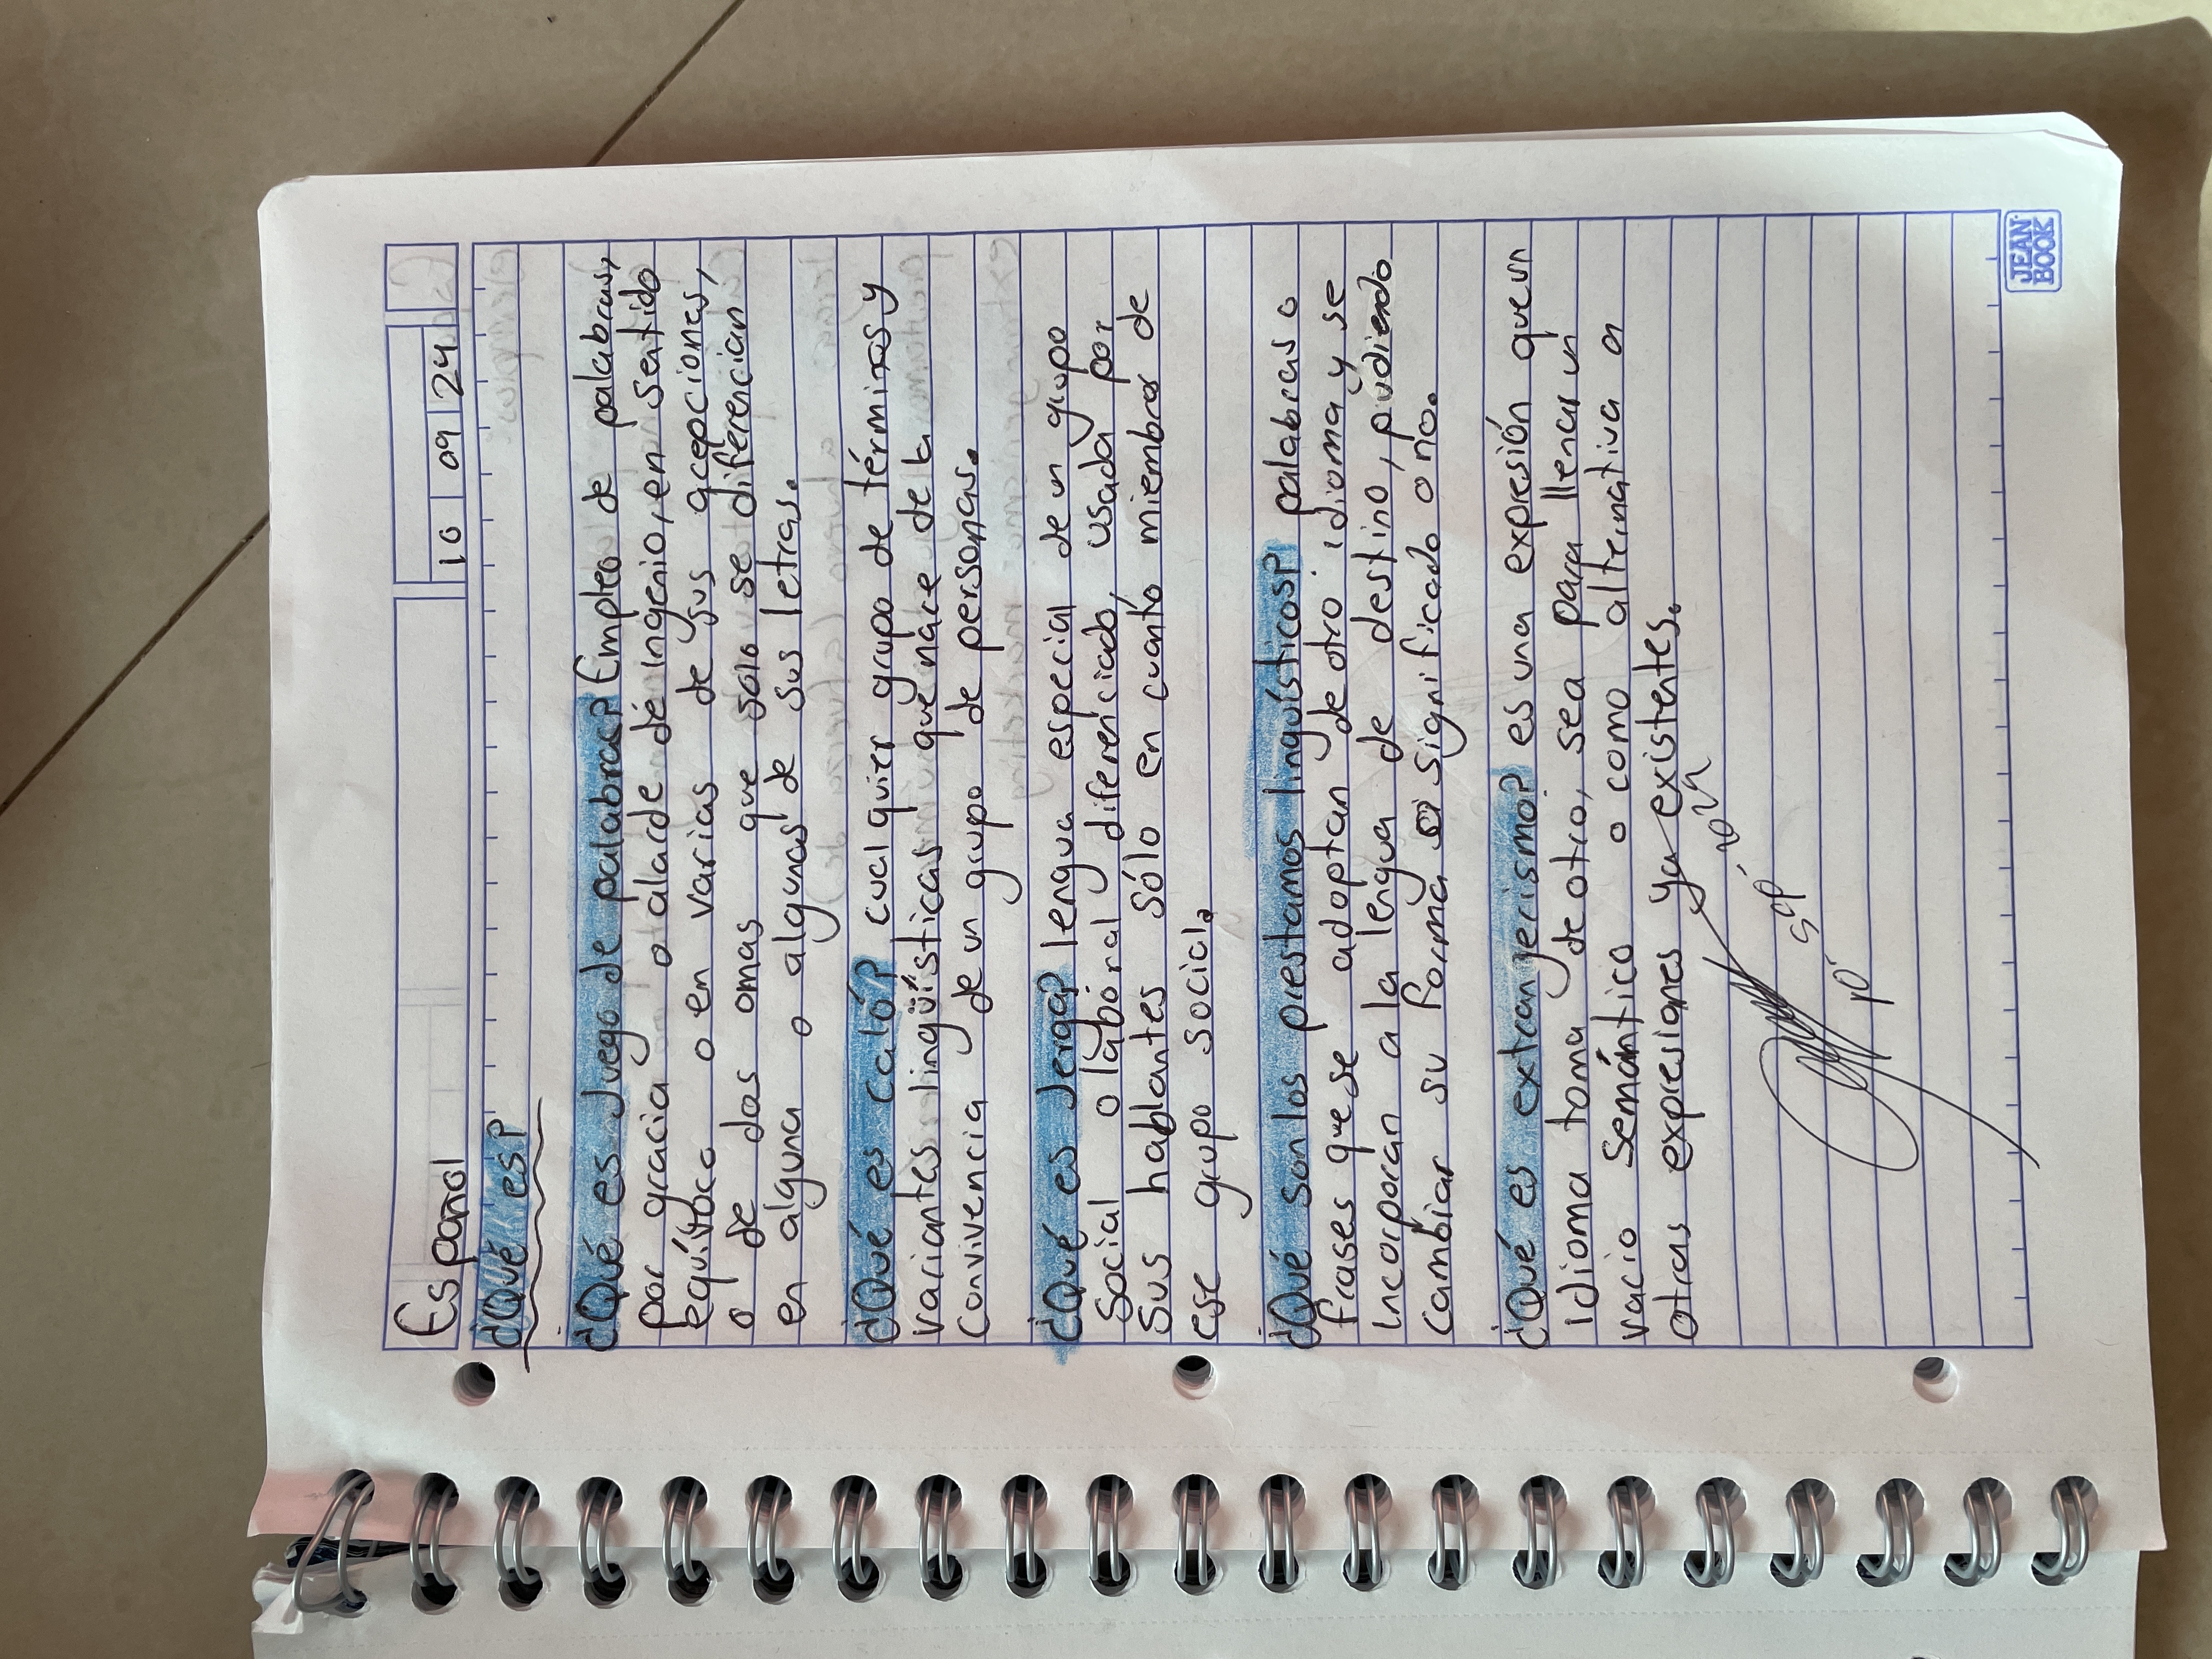 Español
10 09 24
¿Qué es?
¿Qué es Juego de palabras? Empleo de palabras,
por gracia o alarde de ingenio, en sentido
equívoco o en varias de sus acepciones,
o de dos omas que solo se diferencian
en alguna o algunas de sus letras.
¿Qué es caló? cualquier grupo de términos y
variantes lingüísticas que nace de la
Convivencia de un grupo de personas.
¿Qué es Jerga? lengua especial de un grupo
Social o laboral diferenciado, usada por
Sus hablantes sólo en cuanto miembros de
ese grupo social.
¿Qué son los prestamos linguísticos? palabras o
frases que se adoptan de otro idioma y se
incorporan a la lengua de destino, pudiendo
cambiar su forma o significado o no.
¿Qué es extranjerismo? es una expresión que un
idioma toma de otro, sea para llenar un
vacio Semántico o como alternativa a
otras expresiones ya existentes.
Sep
JEAN BOOK